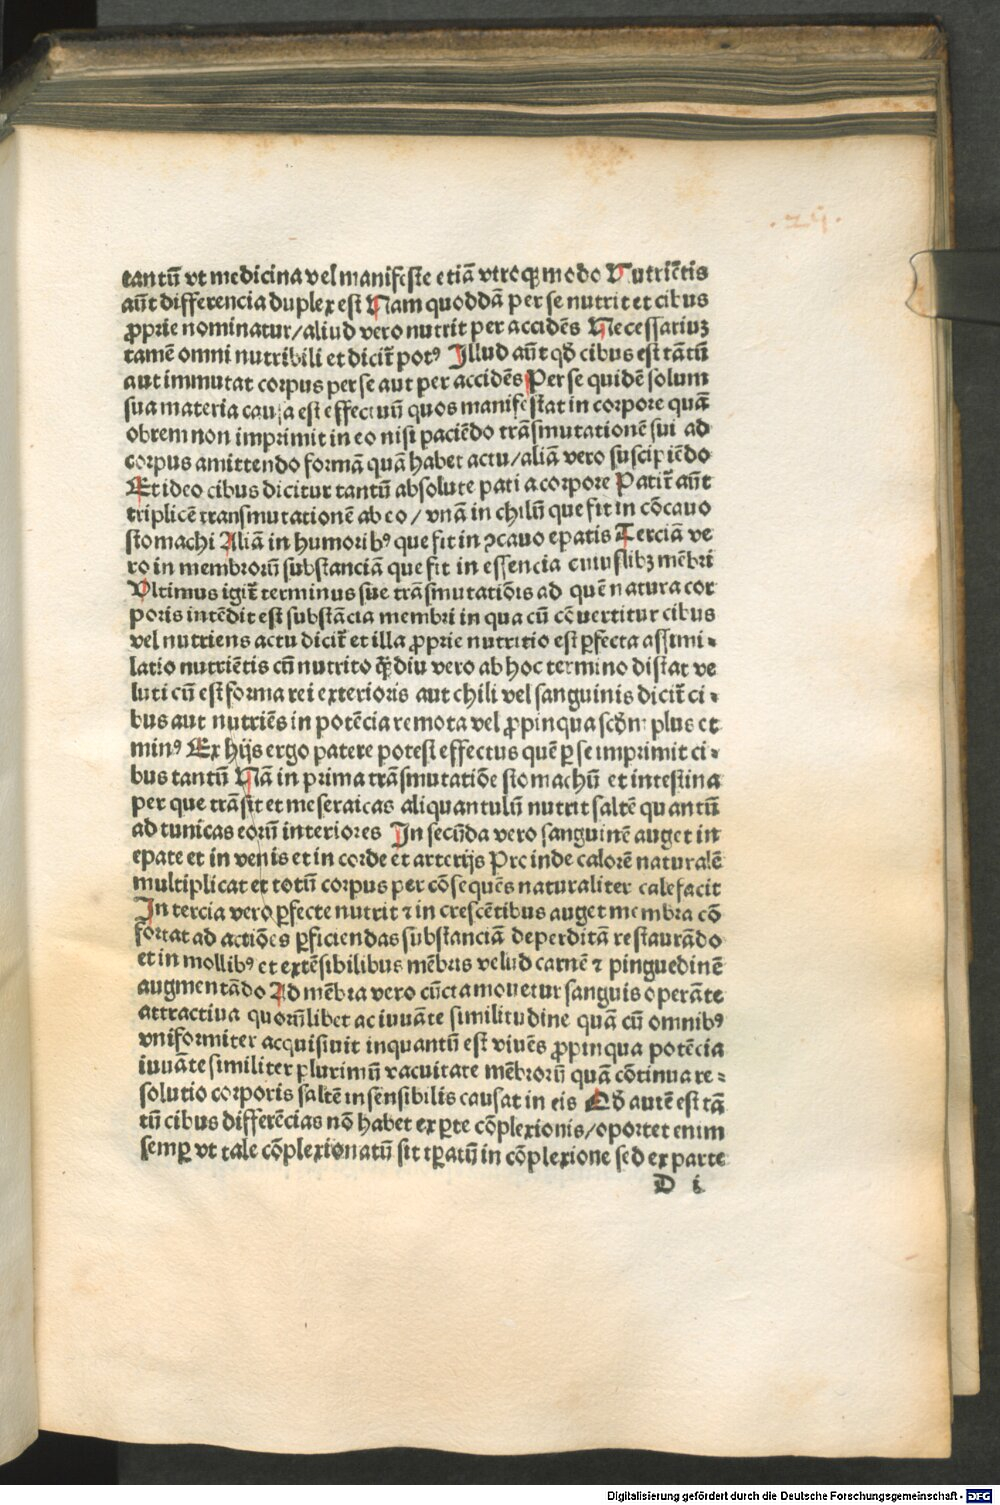 .25.
tantū vt medicina vel manifeste etiā vtroqꝫ modo Nutriētis
aūt differencia duplex est Nam quoddā per se nutrit et cibus
ꝓprie nominatur/aliud vero nutrit per accidēs Necessariuꝫ
tamē omni nutribili et dicit᷑ potꝰ Illud aūt qđ cibus est tātū
aut immutat corpus per se aut per accidēs Per se quidē solum
sua materia causa est effectuū quos manifestat in corpore quā
obrem non imprimit in eo nisi paciēdo trāsmutationē sui ad
corpus amittendo formā quā habet actu/aliā vero suscipiēdo
Et ideo cibus dicitur tantū absolute pati a corpore Patit᷑ aūt
triplicē transmutationē ab eo/vnā in chilū que fit in cōcauo
stomachi Aliā in humoribꝰ que fit in ꝯcauo epatis Terciā ve
ro in membrorū substanciā que fit in essencia cuiuslibꝫ mēbri
Vltimus igit᷑ terminus sue trāsmutatiōis ad quē natura cor
poris intēdit est substācia membri in qua cū cōuertitur cibus
vel nutriens actu dicit᷑ et illa ꝓprie nutritio est ꝑfecta assimi-
latio nutriētis cū nutrito qꝫ̄diu vero ab hoc termino distat ve
luti cū est forma rei exterioris aut chili vel sanguinis dicit᷑ ci-
bus aut nutriēs in potēcia remota vel ꝓpinqua scđm plus et
minꝰ Ex hijs ergo patere potest effectus quē ꝑ se imprimit ci-
bus tantū Nā in prima trāsmutatiōe stomachū et intestina
per que trāsit et meseraicas aliquantulū nutrit saltē quantū
ad tunicas eorū interiores In secūda vero sanguinē auget in
epate et in venis et in corde et arterijs Proinde calorē naturalē
multiplicat et totū corpus per cōsequēs naturaliter calefacit
In tercia vero ꝑfecte nutrit ⁊ in crescētibus auget membra cō
fortat ad actiōes ꝑficiendas substanciā deperditā restaurādo
et in mollibꝰ et extēsibilibus mēbris velud carnē ⁊ pinguedinē
augmentādo Ad mēbra vero cūcta mouetur sanguis operāte
attractiua quorūlibet ac iuuāte similitudine quā cū omnibꝰ
vniformiter acquisiuit inquantū est viuēs ꝓpinqua potēcia
iuuāte similiter plurimū vacuitate mēbrorū quā cōtinua re-
solutio corporis saltē insensibilis causat in eis Qđ autē est tā
tū cibus differēcias nō habet ex ꝑte cōplexionis/oportet enim
sempꝑ vt tale cōplexionatū sit tꝑatū in cōplexione sed ex parte
D i
Digitalisierung gefördert durch die Deutsche Forschungsgemeinschaft - DFG